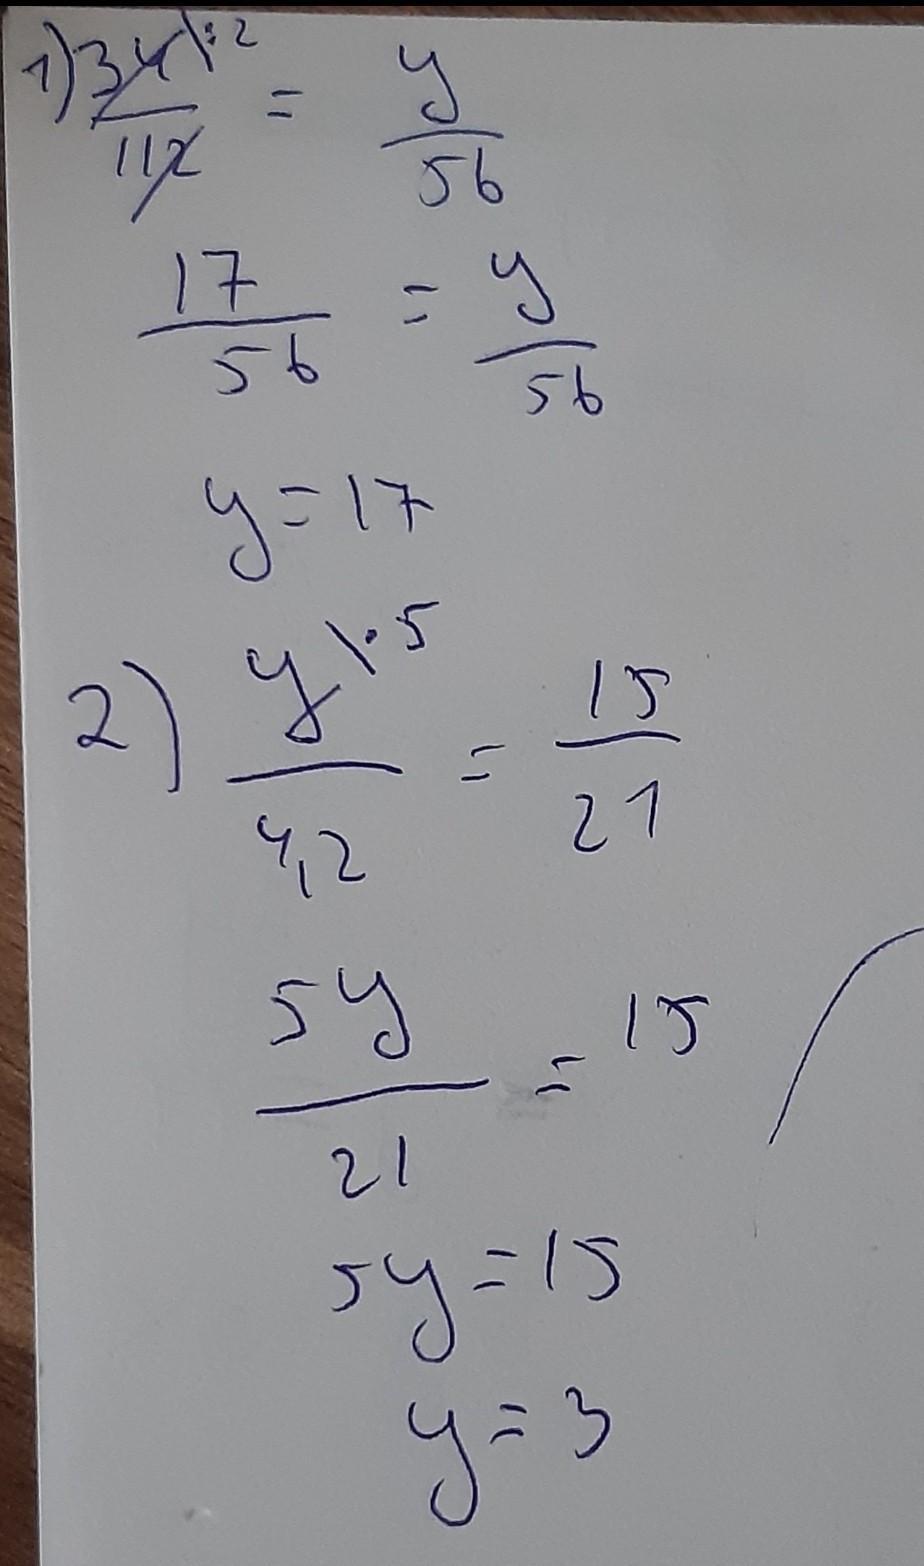 1) 34\:2 / 112 = y / 56
17 / 56 = y / 56
y = 17
2) y\·5 / 4,2 = 15 / 21
5y / 21 = 15
5y = 15
y = 3